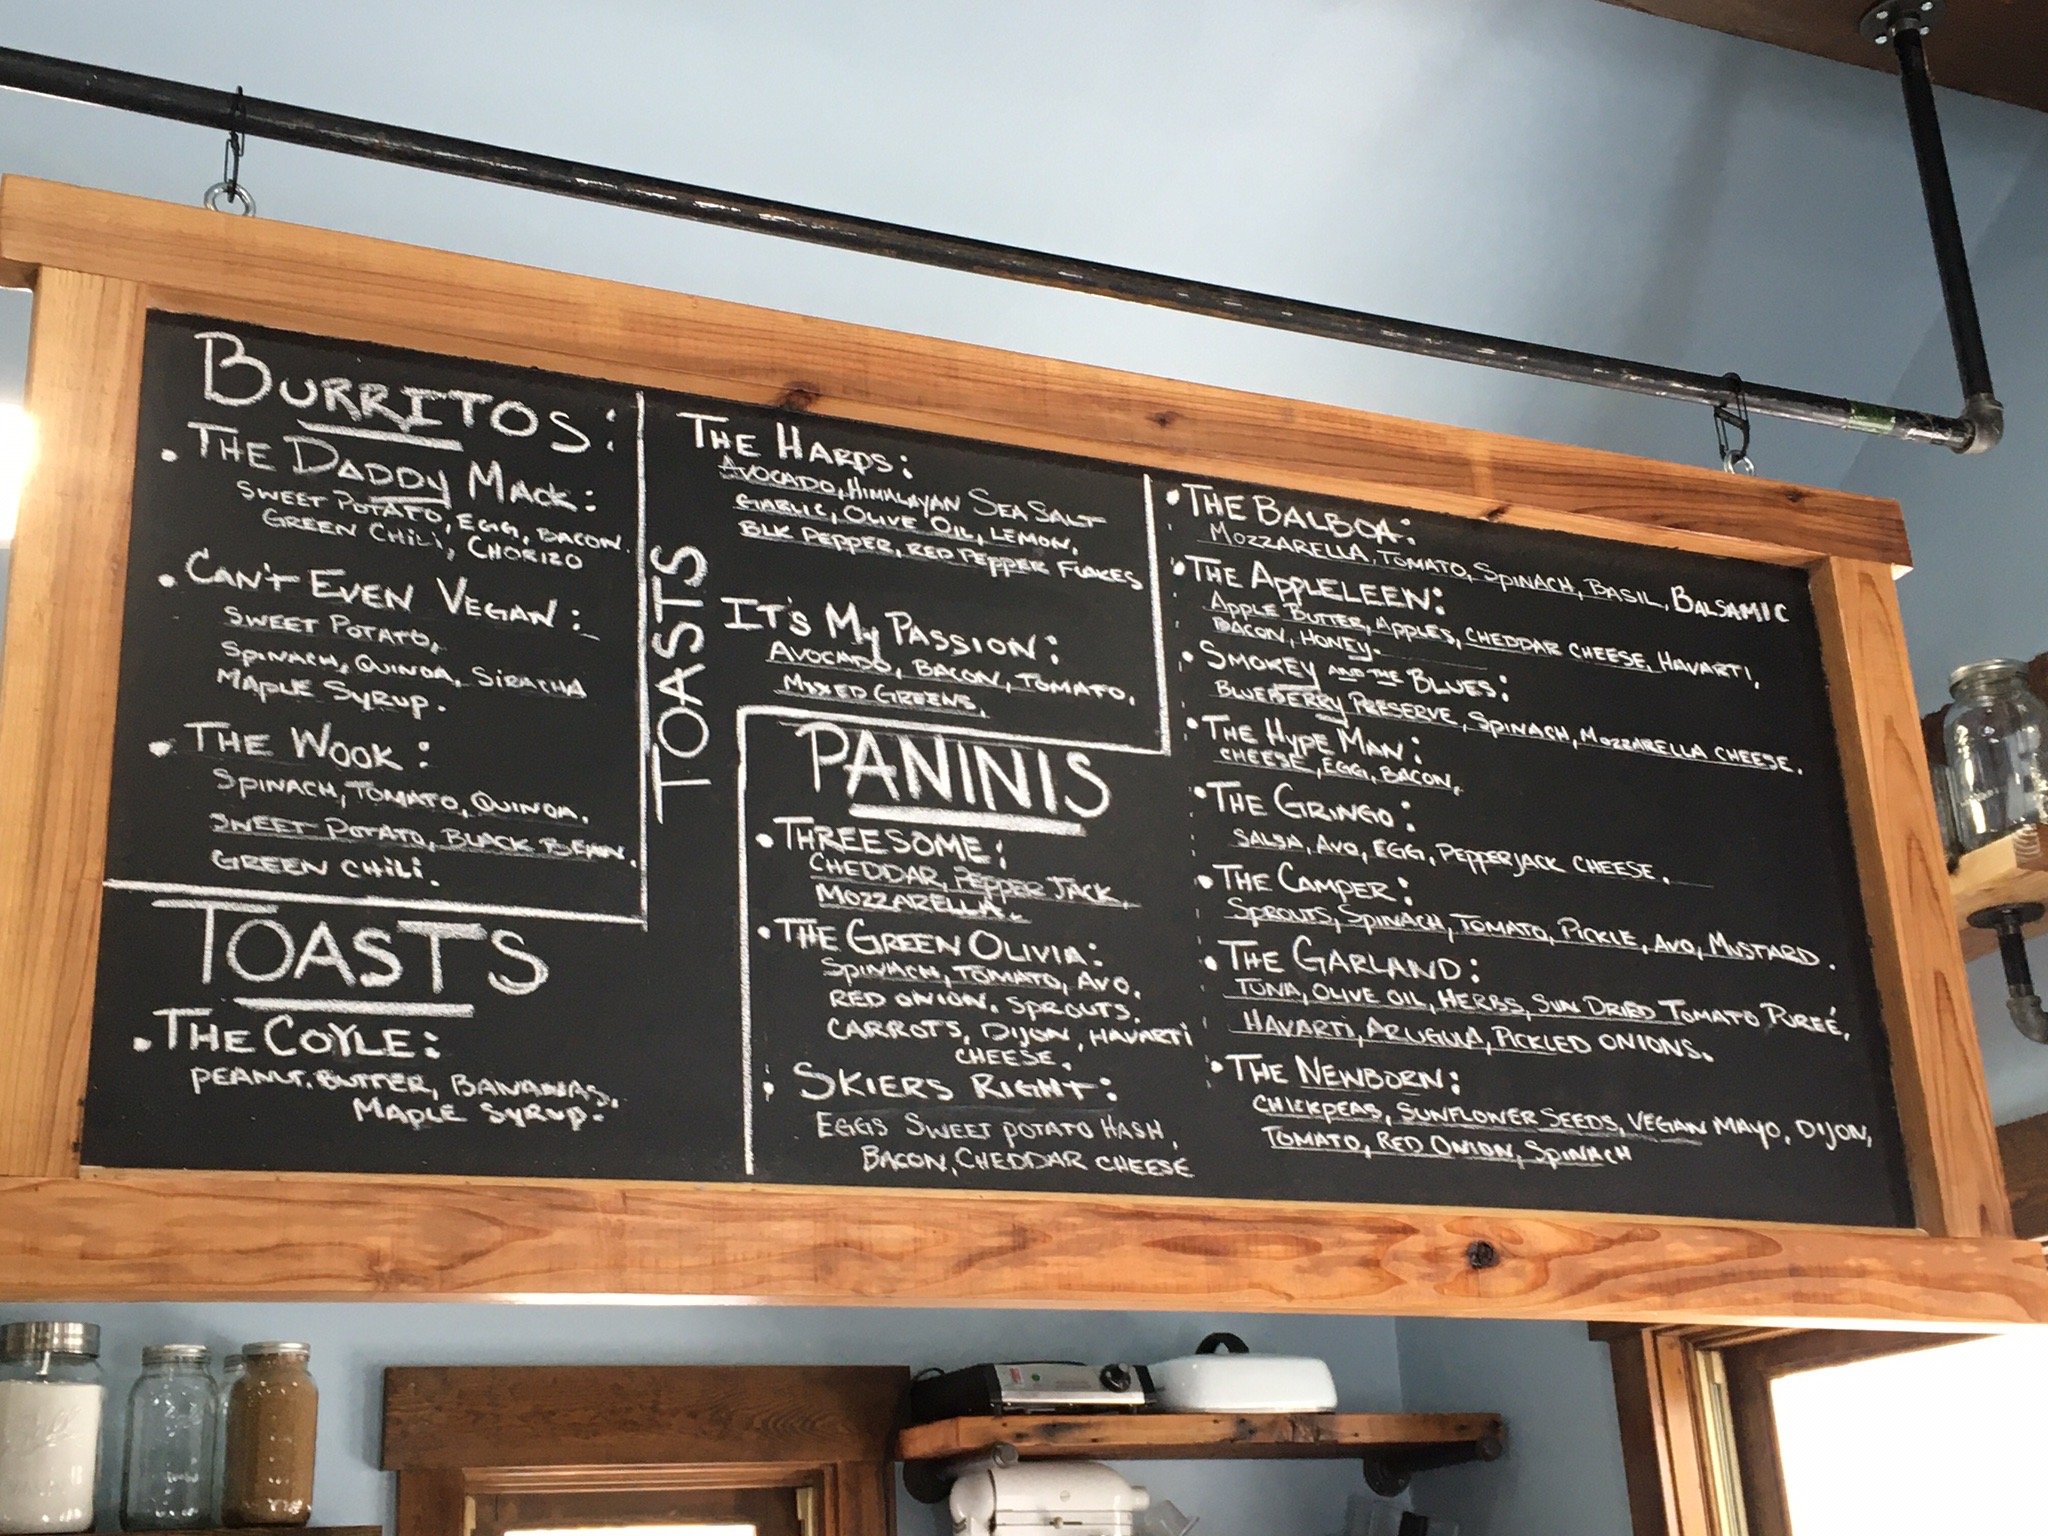 BURRITOS:
• THE DADDY MACK:
SWEET POTATO, EGG, BACON.
GREEN CHILI, CHORIZO
• CAN'T EVEN VEGAN:
SWEET POTATO,
SPINACH, QUINOA, SIRACHA
MAPLE SYRUP.
• THE WOOK:
SPINACH, TOMATO, QUINOA.
SWEET POTATO, BLACK BEAN.
GREEN CHILI.
TOASTS
• THE COYLE:
PEANUT BUTTER, BANANAS,
MAPLE SYRUP.
TOASTS
THE HARPS:
AVOCADO, HIMALAYAN SEA SALT
GARLIC, OLIVE OIL, LEMON,
BLK PEPPER, RED PEPPER FLAKES
IT'S MY PASSION:
AVOCADO, BACON, TOMATO,
MIXED GREENS,
PANINIS
• THREESOME:
CHEDDAR, PEPPER JACK,
MOZZARELLA.
• THE GREEN OLIVIA:
SPINACH, TOMATO, AVO.
RED ONION, SPROUTS.
CARROTS, DIJON, HAVARTI
CHEESE.
• SKIERS RIGHT:
EGGS SWEET POTATO HASH,
BACON, CHEDDAR CHEESE
• THE BALBOA:
MOZZARELLA, TOMATO, SPINACH, BASIL, BALSAMIC
• THE APPLELEEN:
APPLE BUTTER, APPLES, CHEDDAR CHEESE, HAVARTI,
BACON, HONEY.
• SMOKEY AND THE BLUES:
BLUEBERRY PRESERVE, SPINACH, MOZZARELLA CHEESE.
• THE HYPE MAN:
CHEESE, EGG, BACON,
• THE GRINGO:
SALSA, AVO, EGG, PEPPERJACK CHEESE.
• THE CAMPER:
SPROUTS, SPINACH, TOMATO, PICKLE, AVO, MUSTARD.
• THE GARLAND:
TUNA, OLIVE OIL, HERBS, SUN DRIED TOMATO PUREÉ,
HAVARTI, ARUGULA, PICKLED ONIONS.
• THE NEWBORN:
CHICKPEAS, SUNFLOWER SEEDS, VEGAN MAYO, DIJON,
TOMATO, RED ONION, SPINACH